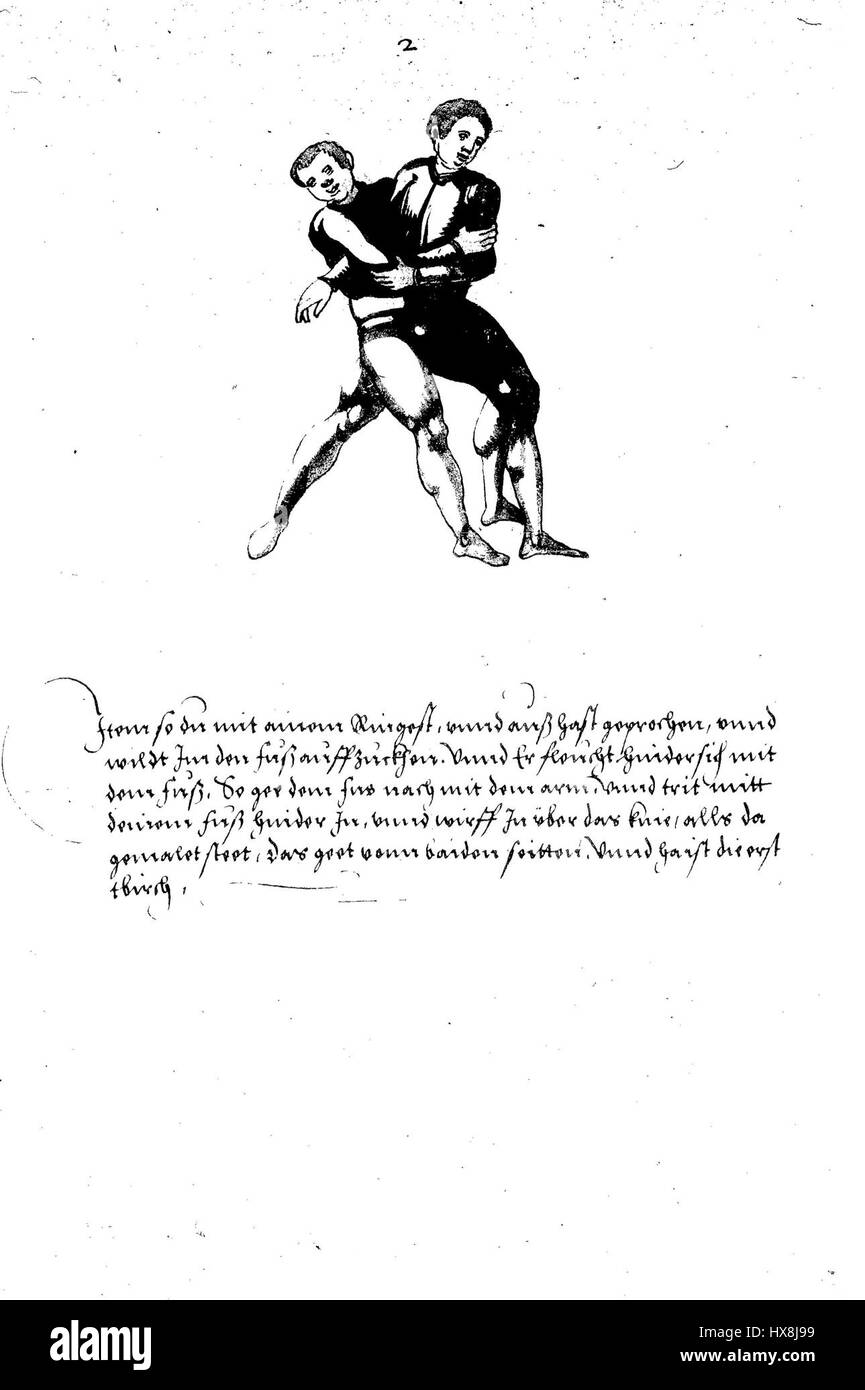 2
Item so du mit ainem Ringest, unnd auß hast geprochen, unnd
wildt Im den fuß auff zuckhen. Unnd Er fleucht hinder sich mit
dem fuß. So gee dem fus nach mit dem arm. Unnd trit mitt
deinem fuß hinder In, unnd wirff In über das knie, alls da
gemalet steet, Das geet vonn baiden seitten. Unnd haist die erst
alamy
alamy stock photo
HX8J99
www.alamy.com